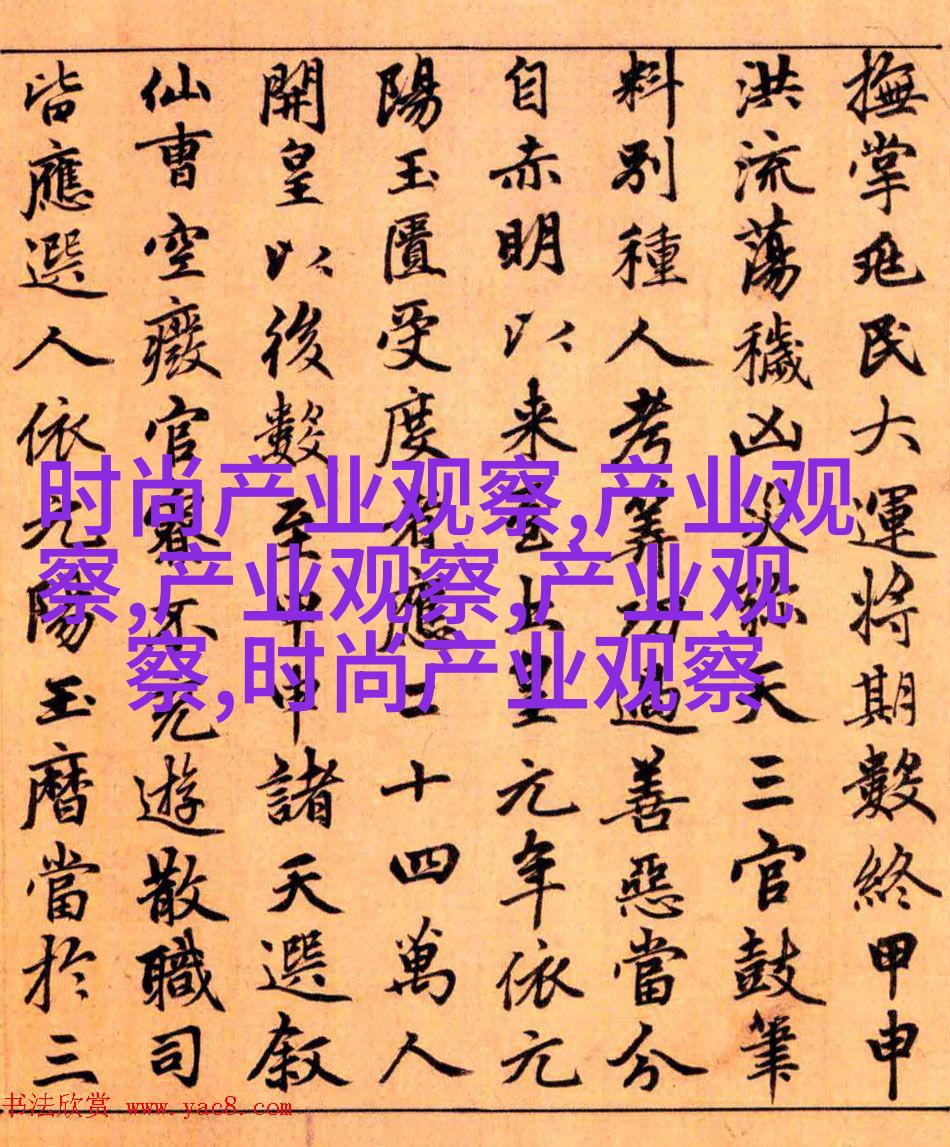 撫掌兆民大運將期數終甲申
洪流蕩穢凶災弥天三官鼓筆
料別種人考筭功過善惡當分
自赤明以来至上皇元年依元
陽玉匱受度者應二十四萬人
開皇以後數至甲申諸天選叙
仙曹空癈官僚不充遊散職司
皆應選人依元陽玉曆當於三
时尚产业观察,产业观
察,产业观察,产业观
察,时尚产业观察
书法欣赏 www.yac8.com